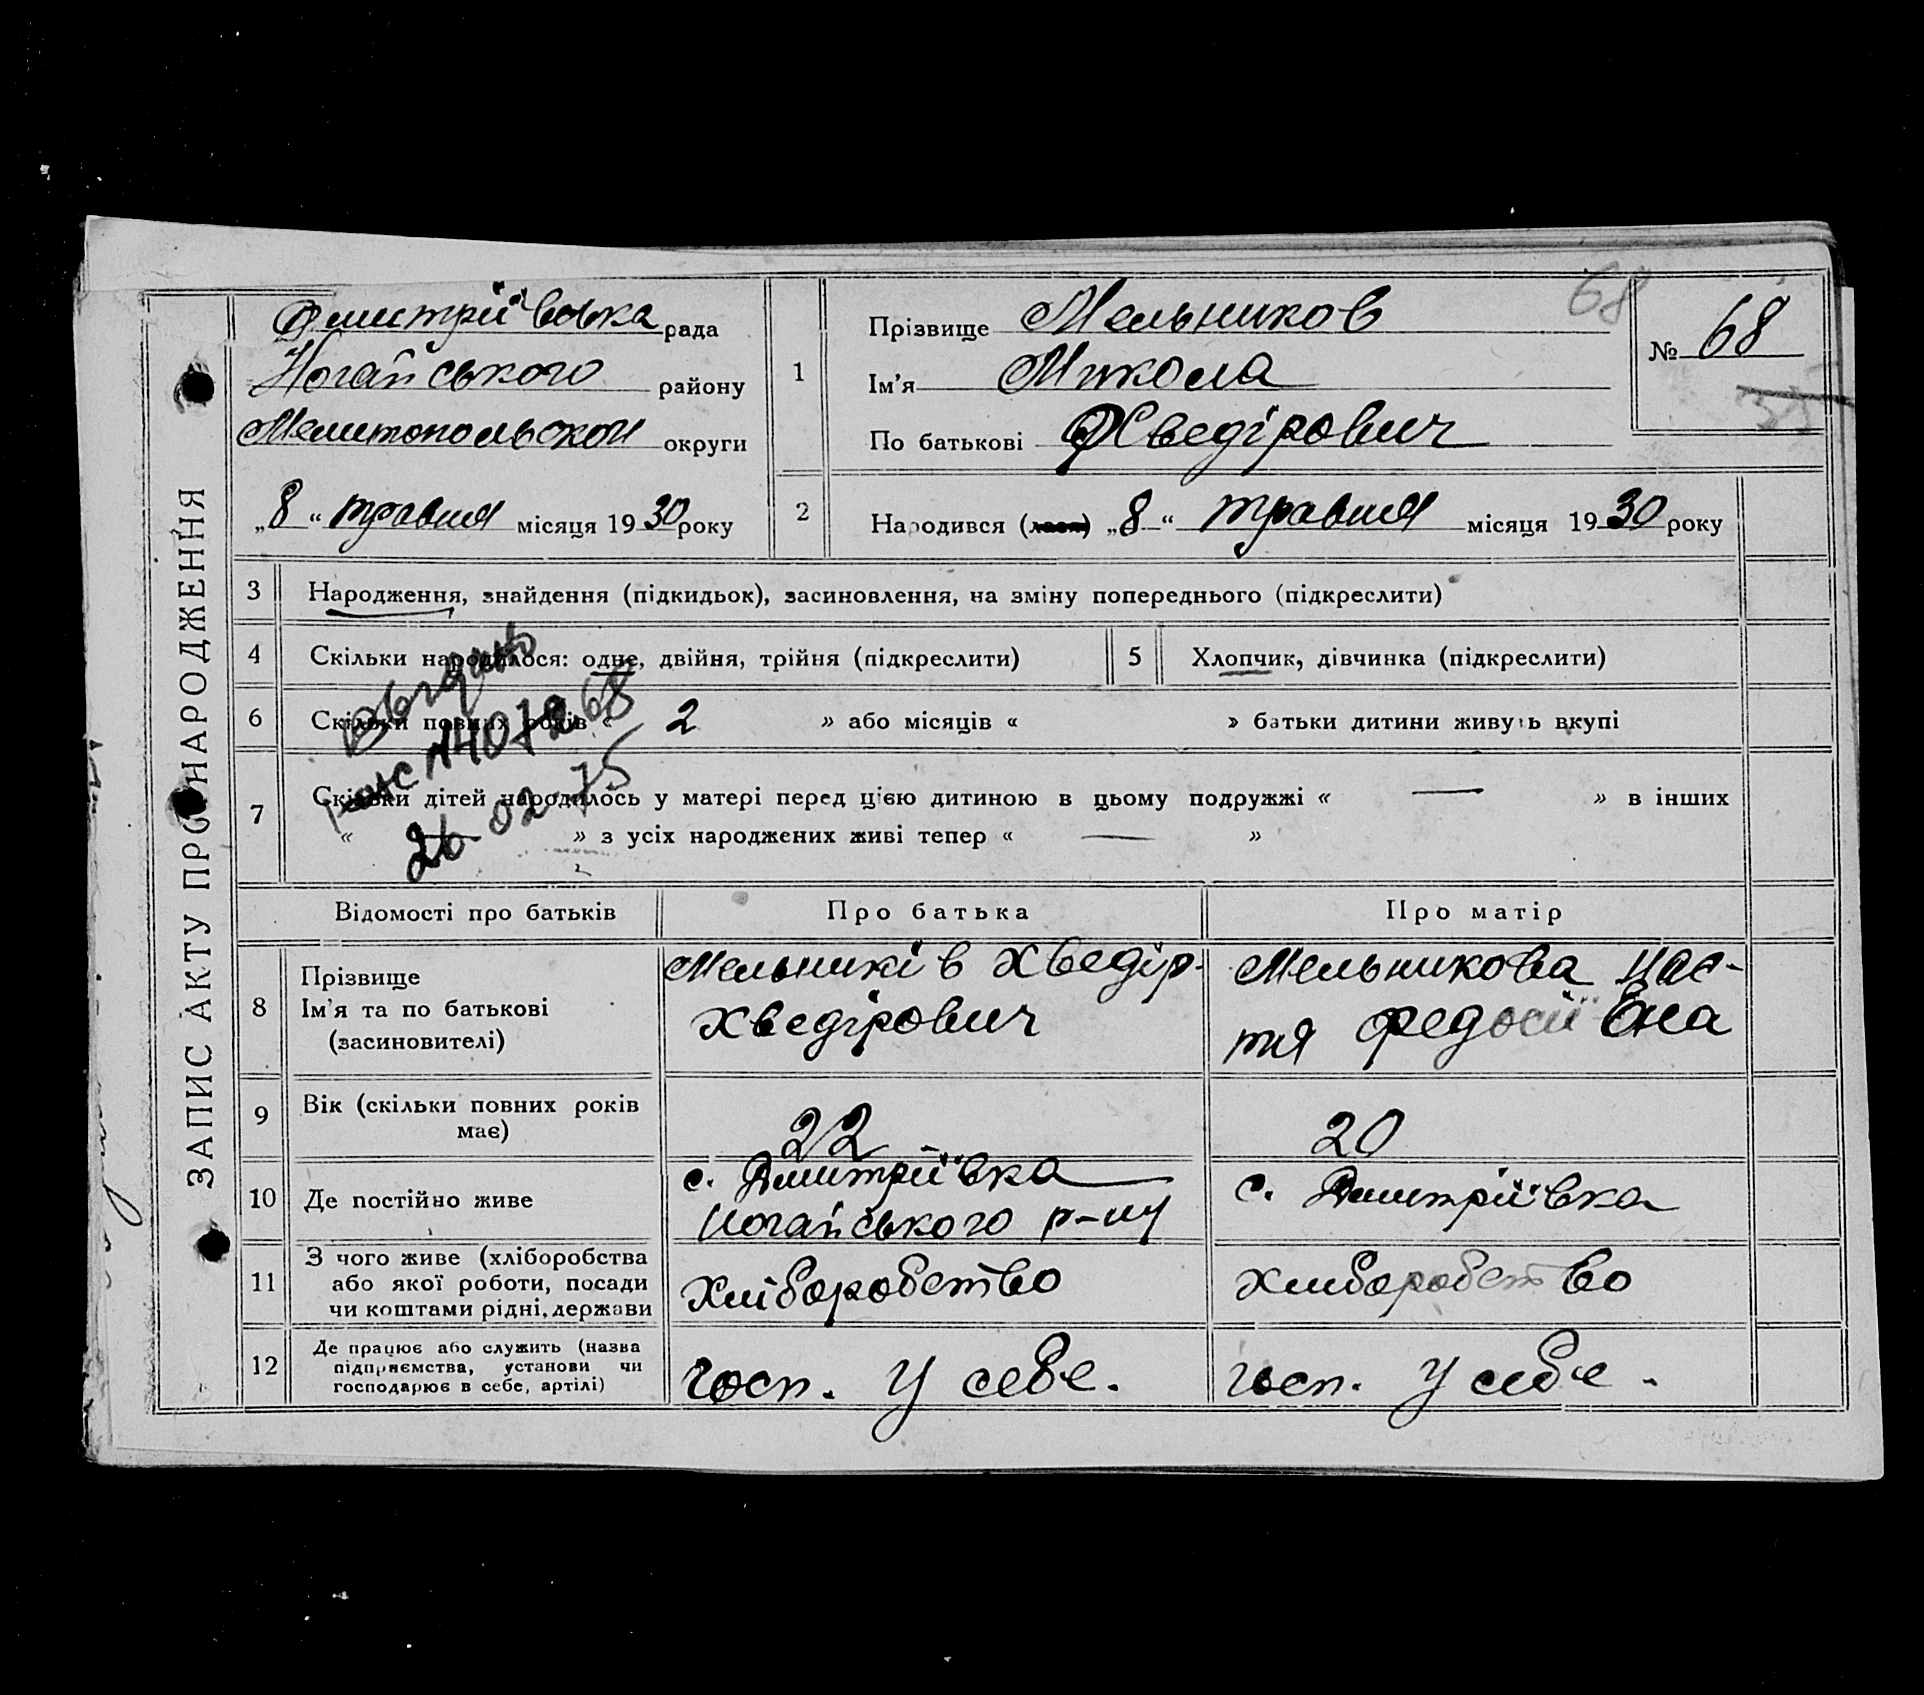 ЗАПИС АКТУ ПРО НАРОДЖЕННЯ
Дмитріївська рада
Ногайського району
Мелитопольской округи
„8“ травня місяця 1930 року
68
№ 68
1
Прізвище Мельников
Ім’я Микола
По батькові Хведірович
2
Народився (лася) „8“ травня місяця 1930 року
3 Народження, знайдення (підкидьок), засиновлення, на зміну попереднього (підкреслити)
4 Скільки народилося: одне, двійня, трійня (підкреслити)
5 Хлопчик, дівчинка (підкреслити)
6 Скільки повних років « 2 » або місяців « » батьки дитини живуть вкупі
7 Скільки дітей народилось у матері перед цією дитиною в цьому подружжі « — » в інших
« » з усіх народжених живі тепер « — »
26.02.75
Відомості про батьків
Про батька
Про матір
8 Прізвище
Ім’я та по батькові
(засиновителі)
Мельників Хведір
Хведірович
Мельникова Нас-
тя Федосіївна
9 Вік (скільки повних років
має)
22
20
10 Де постійно живе
с. Дмитріївка
Ногайського р-ну
с. Дмитріївка
11 З чого живе (хліборобства
або якої роботи, посади
чи коштами рідні, держави
Хліборобство
Хлиборобство
12 Де працює або служить (назва
підприємства, установи чи
господарює в себе, артілі)
госп. У себе.
госп. У себе.